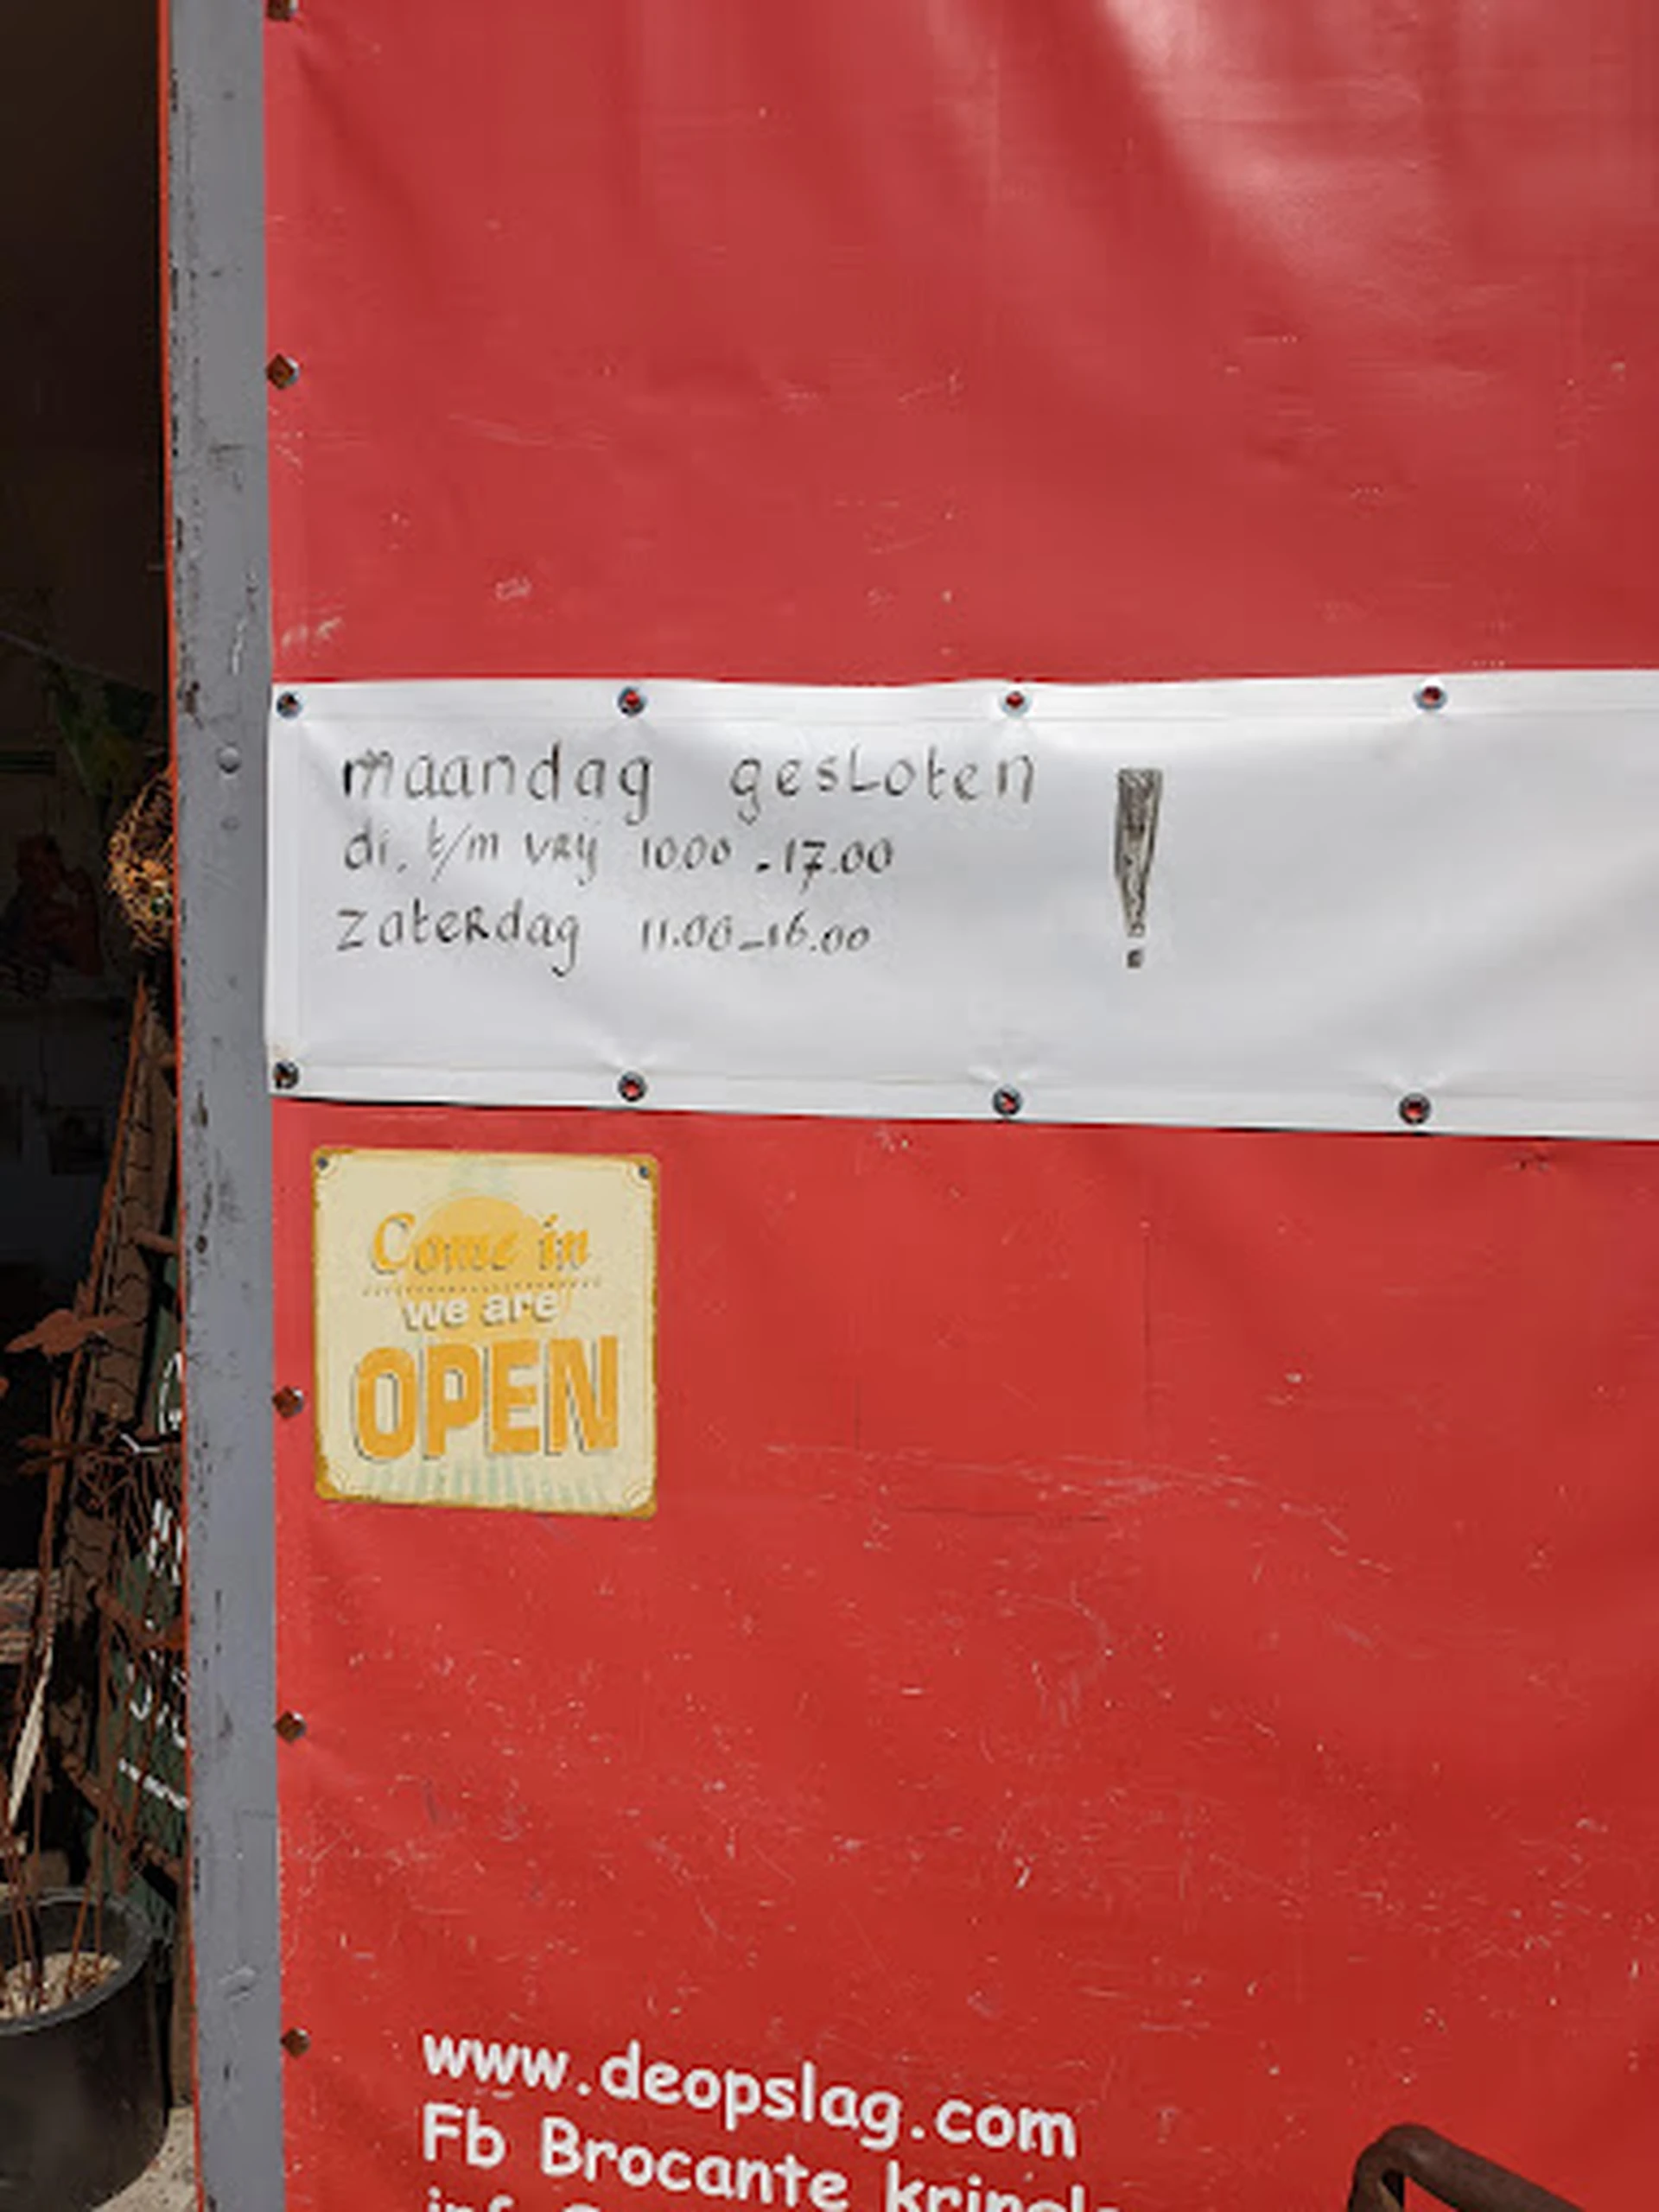 maandag gesloten !
di. t/m vrij 10.00 - 17.00
zaterdag 11.00 - 16.00
Come in
we are
OPEN
www.deopslag.com
Fb Brocante